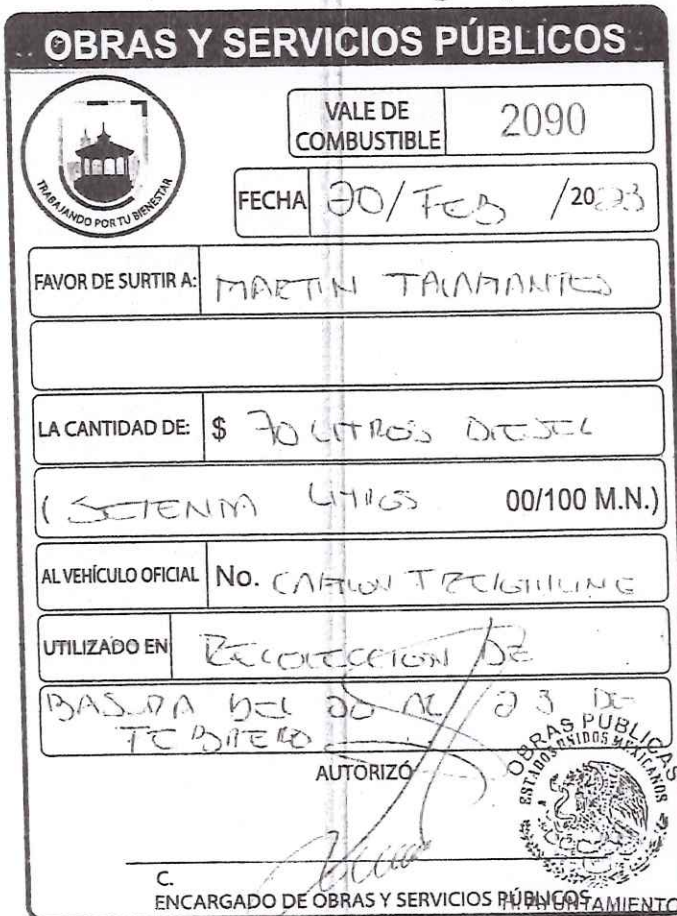 OBRAS Y SERVICIOS PÚBLICOS
TRABAJANDO POR TU BIENESTAR
VALE DE COMBUSTIBLE 2090
FECHA 20/FEB /2023
FAVOR DE SURTIR A: MARTIN TALAMANTES
LA CANTIDAD DE: $ 70 LITROS DIESEL
(SETENTA LITROS 00/100 M.N.)
AL VEHÍCULO OFICIAL No. CAMION
UTILIZADO EN RECOLECCION DE
BASURA DEL 20 AL 23 DE
FEBRERO
AUTORIZÓ
OBRAS PUBLICAS
ESTADOS UNIDOS MEXICANOS
C.
ENCARGADO DE OBRAS Y SERVICIOS PÚBLICOS
H. AYUNTAMIENTO